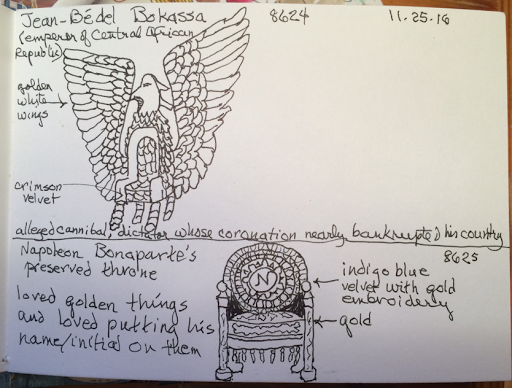 Jean-Bédel Bokassa
8624
11.25.16
(emperor of Central African
Republic)
golden
white
wings
crimson
velvet
alleged cannibal, dictator whose coronation nearly bankrupted his country
8625
Napoleon Bonaparte's
preserved throne
loved golden things
and loved putting his
name/initial on them
N
indigo blue
velvet with gold
embroidery
gold